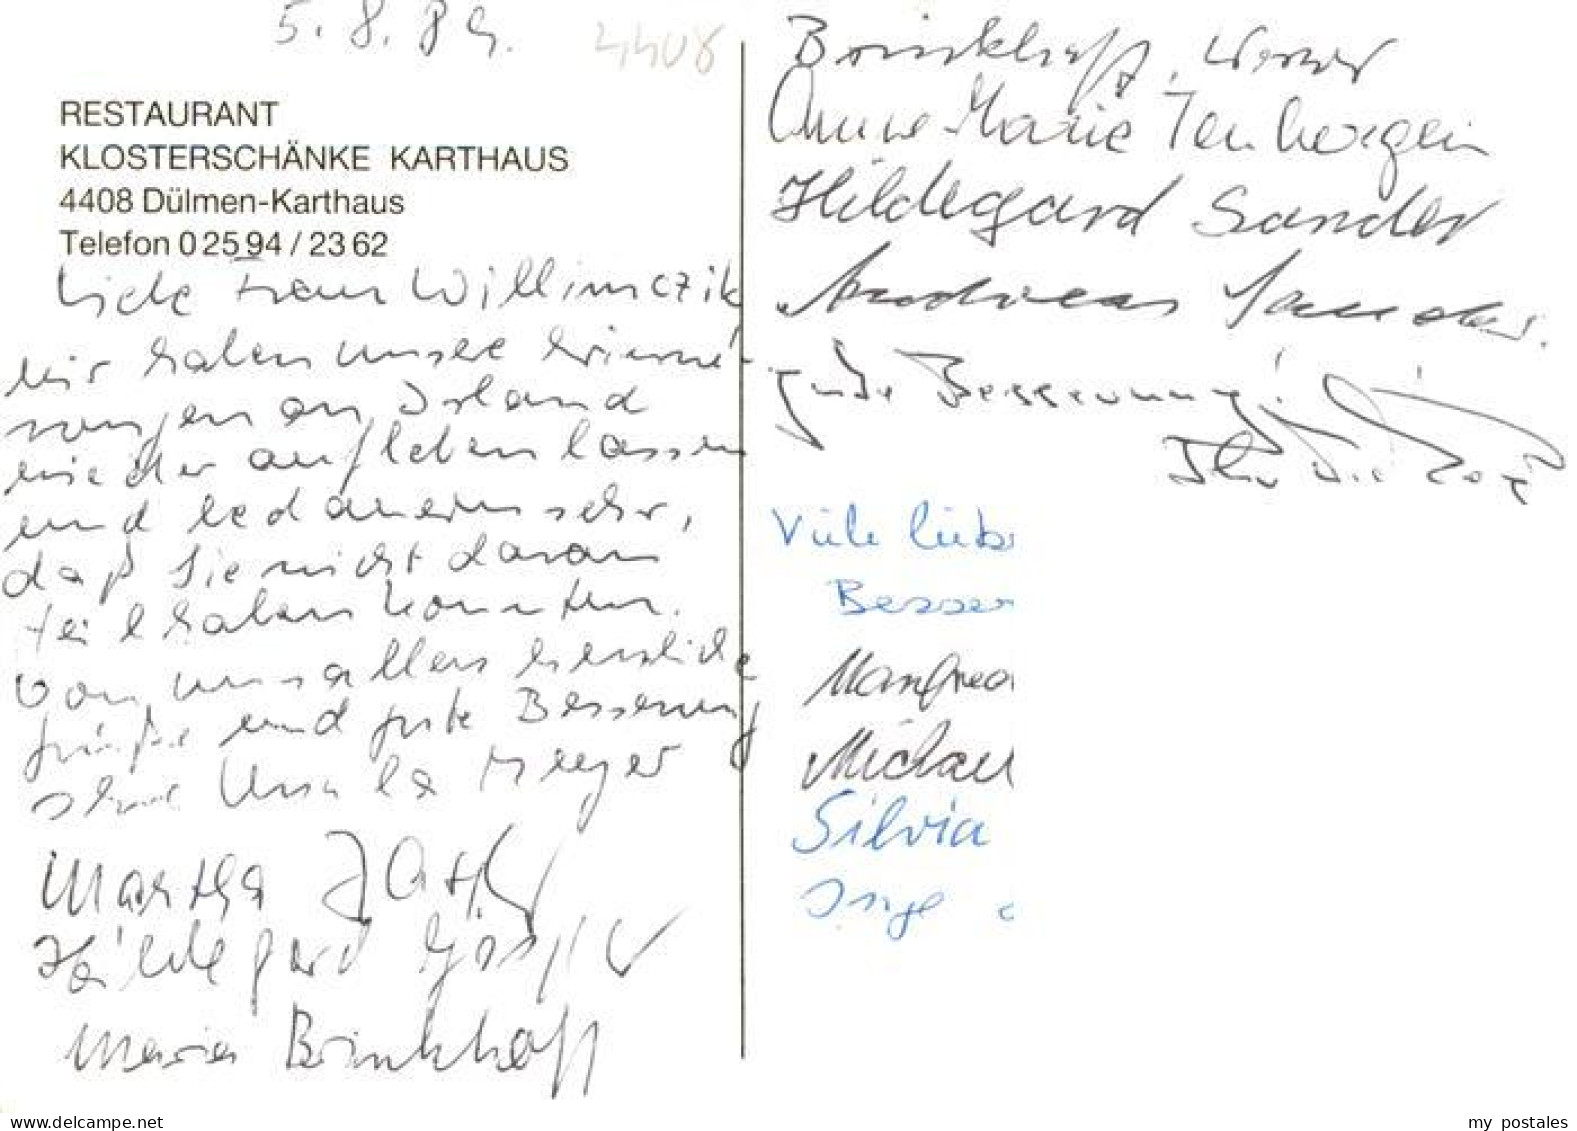 5.8.89.
4408
RESTAURANT
KLOSTERSCHÄNKE KARTHAUS
4408 Dülmen-Karthaus
Telefon 0 25 94 / 23 62
Liebe Frau Willimczik
wir haben unsere Erinne-
rungen an Island
wieder aufleben lassen
und bedauern sehr,
daß Sie nicht daran
teilhaben konnten.
Von uns allen herzliche
Grüße und gute Besserung
Ihre Ursula Meyer
Martha
Hildegard
Maria Brinkhoff
Brinkhoff, Werner
Anne-Marie Tenbergen
Hildegard Sander
Andreas Sander.
gute Besserung!
Ihr
Viele liebe
Besser
Manfred
Michael
Silvia
Inge
delcampe.net
my postales